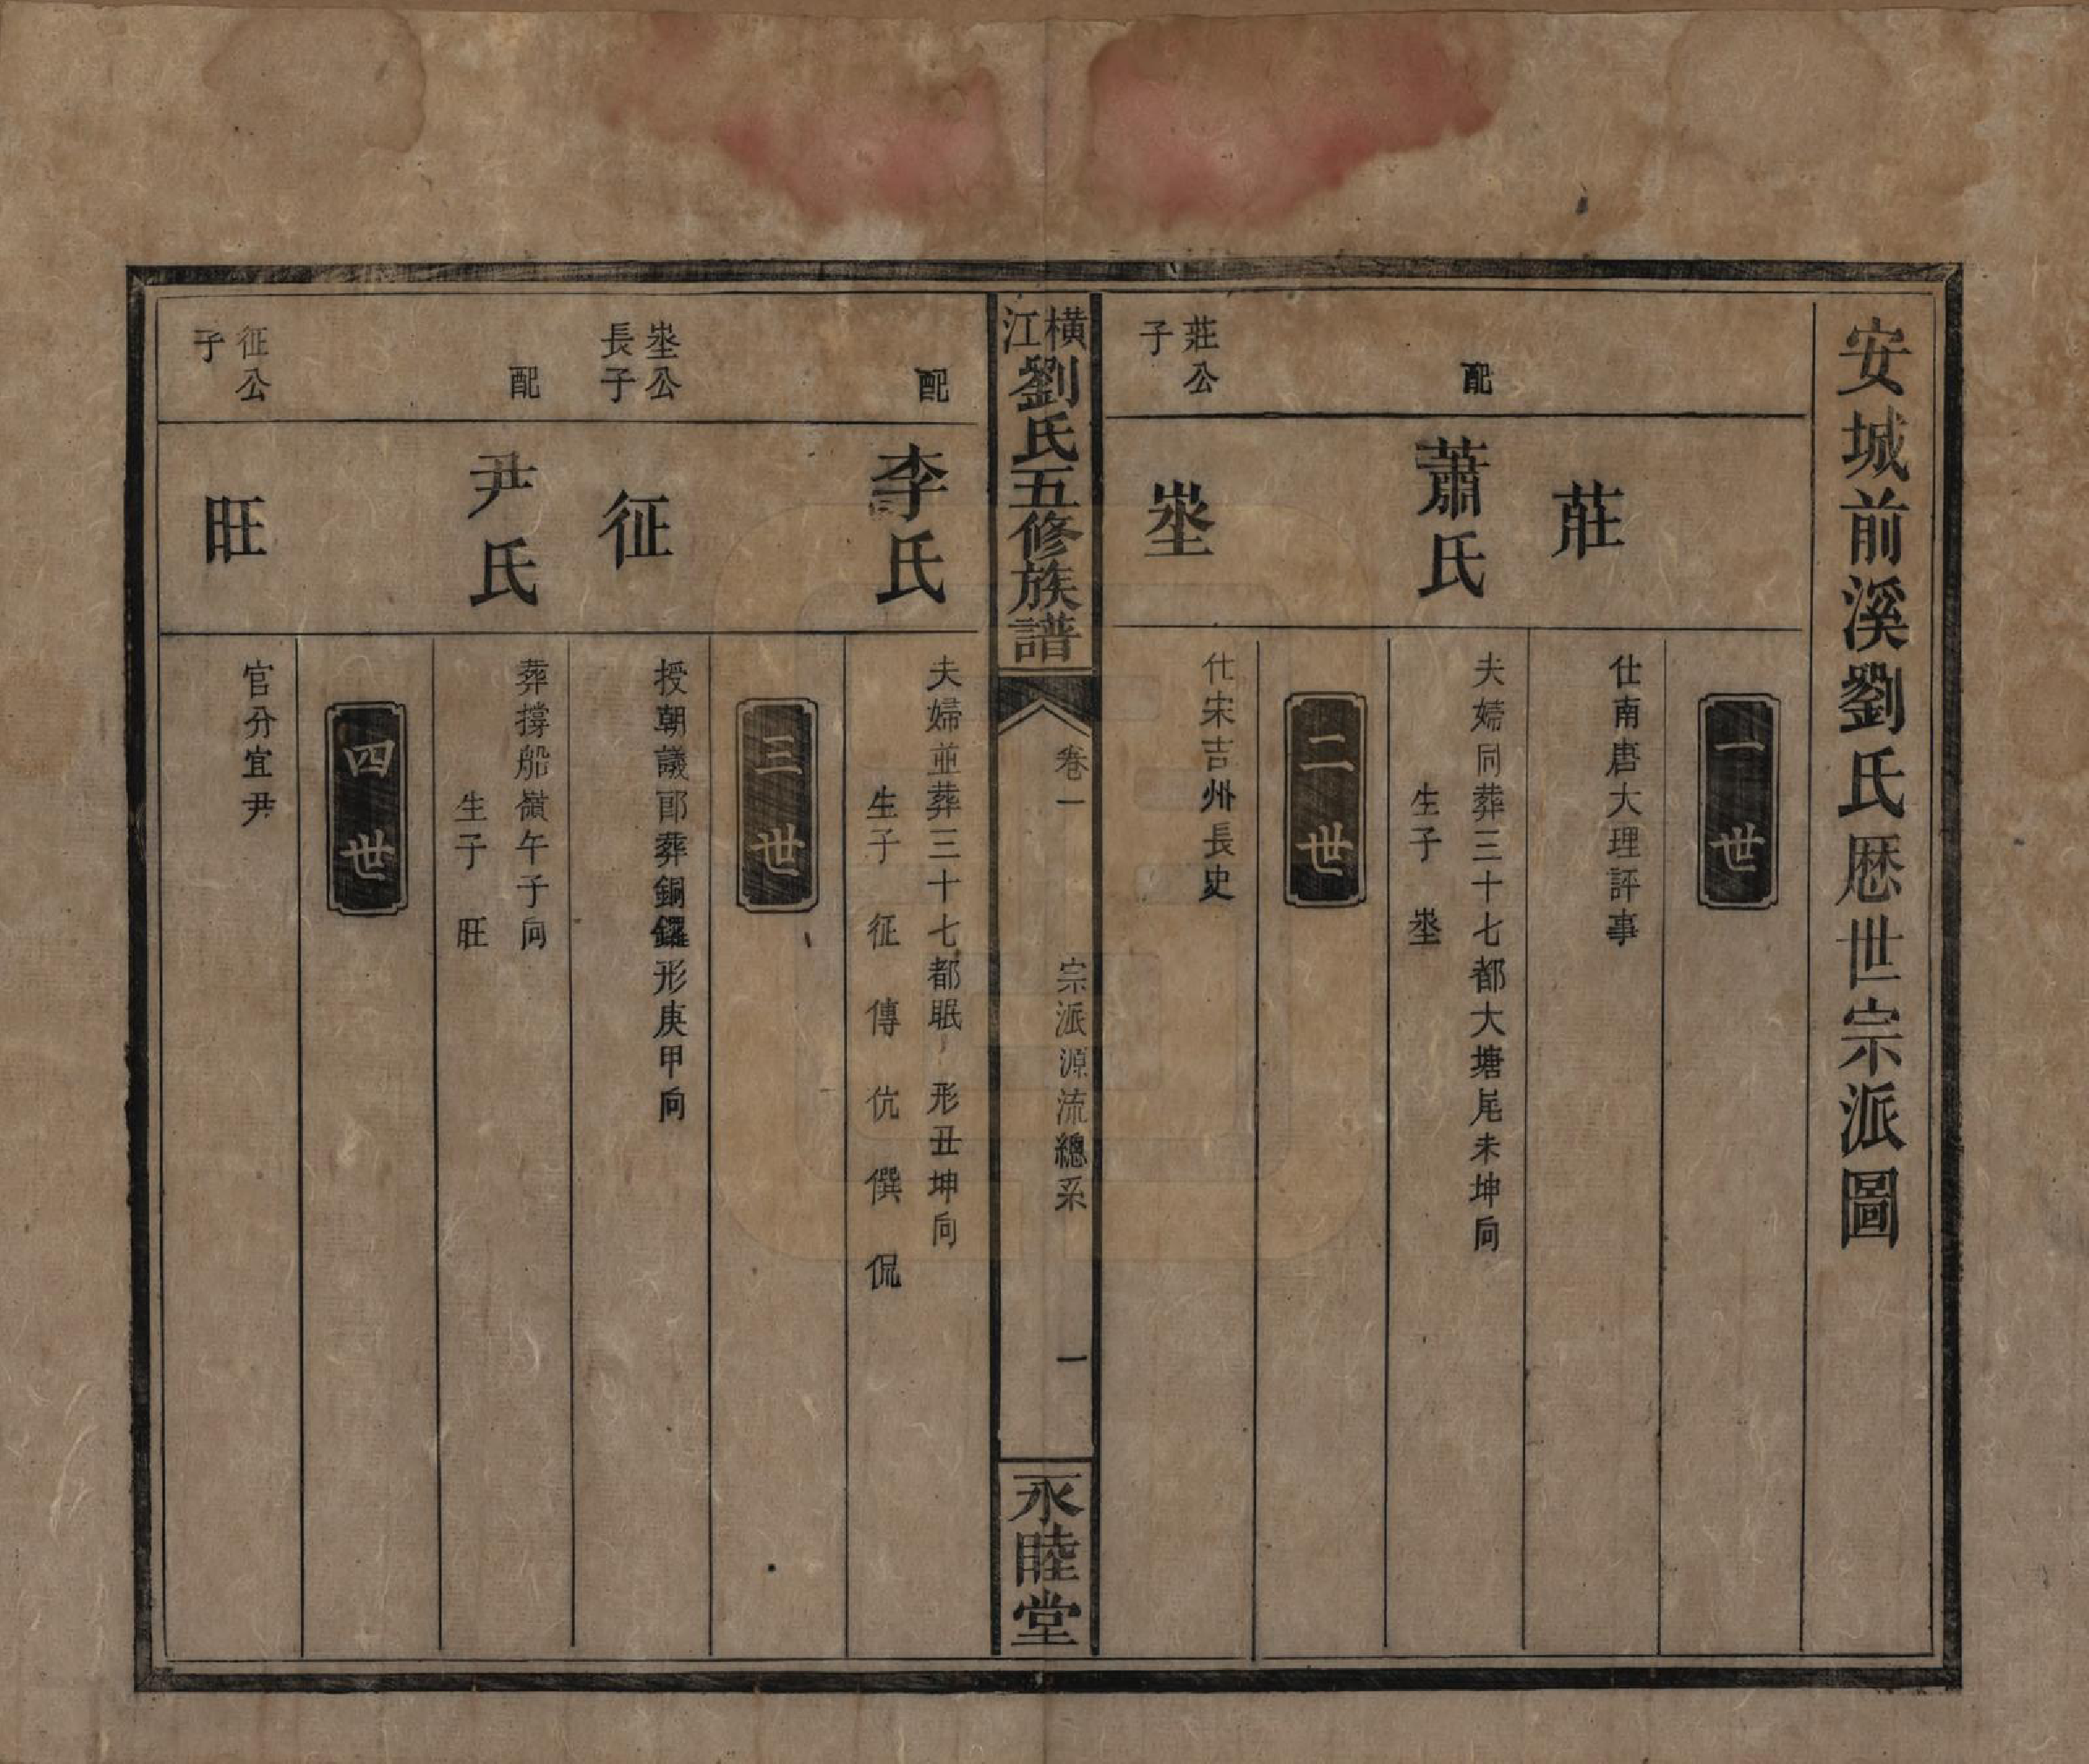 安城前溪劉氏歴世宗派圖
一世
莊
仕南唐大理評事
配
蕭氏
夫婦同葬三十七都大塘尾未坤向
生子 埊
二世
莊公
子
埊
仕宋吉州長史
橫江劉氏五修族譜
卷一
宗派源流總系
一
永睦堂
配
李氏
夫婦並葬三十七都眠 形丑坤向
生子 征 傳 伉 僎 侃
三世
埊公
長子
征
授朝議郎葬銅鑼形庚甲向
配
尹氏
葬撐船嶺午子向
生子 旺
四世
征公
子
旺
官分宜尹